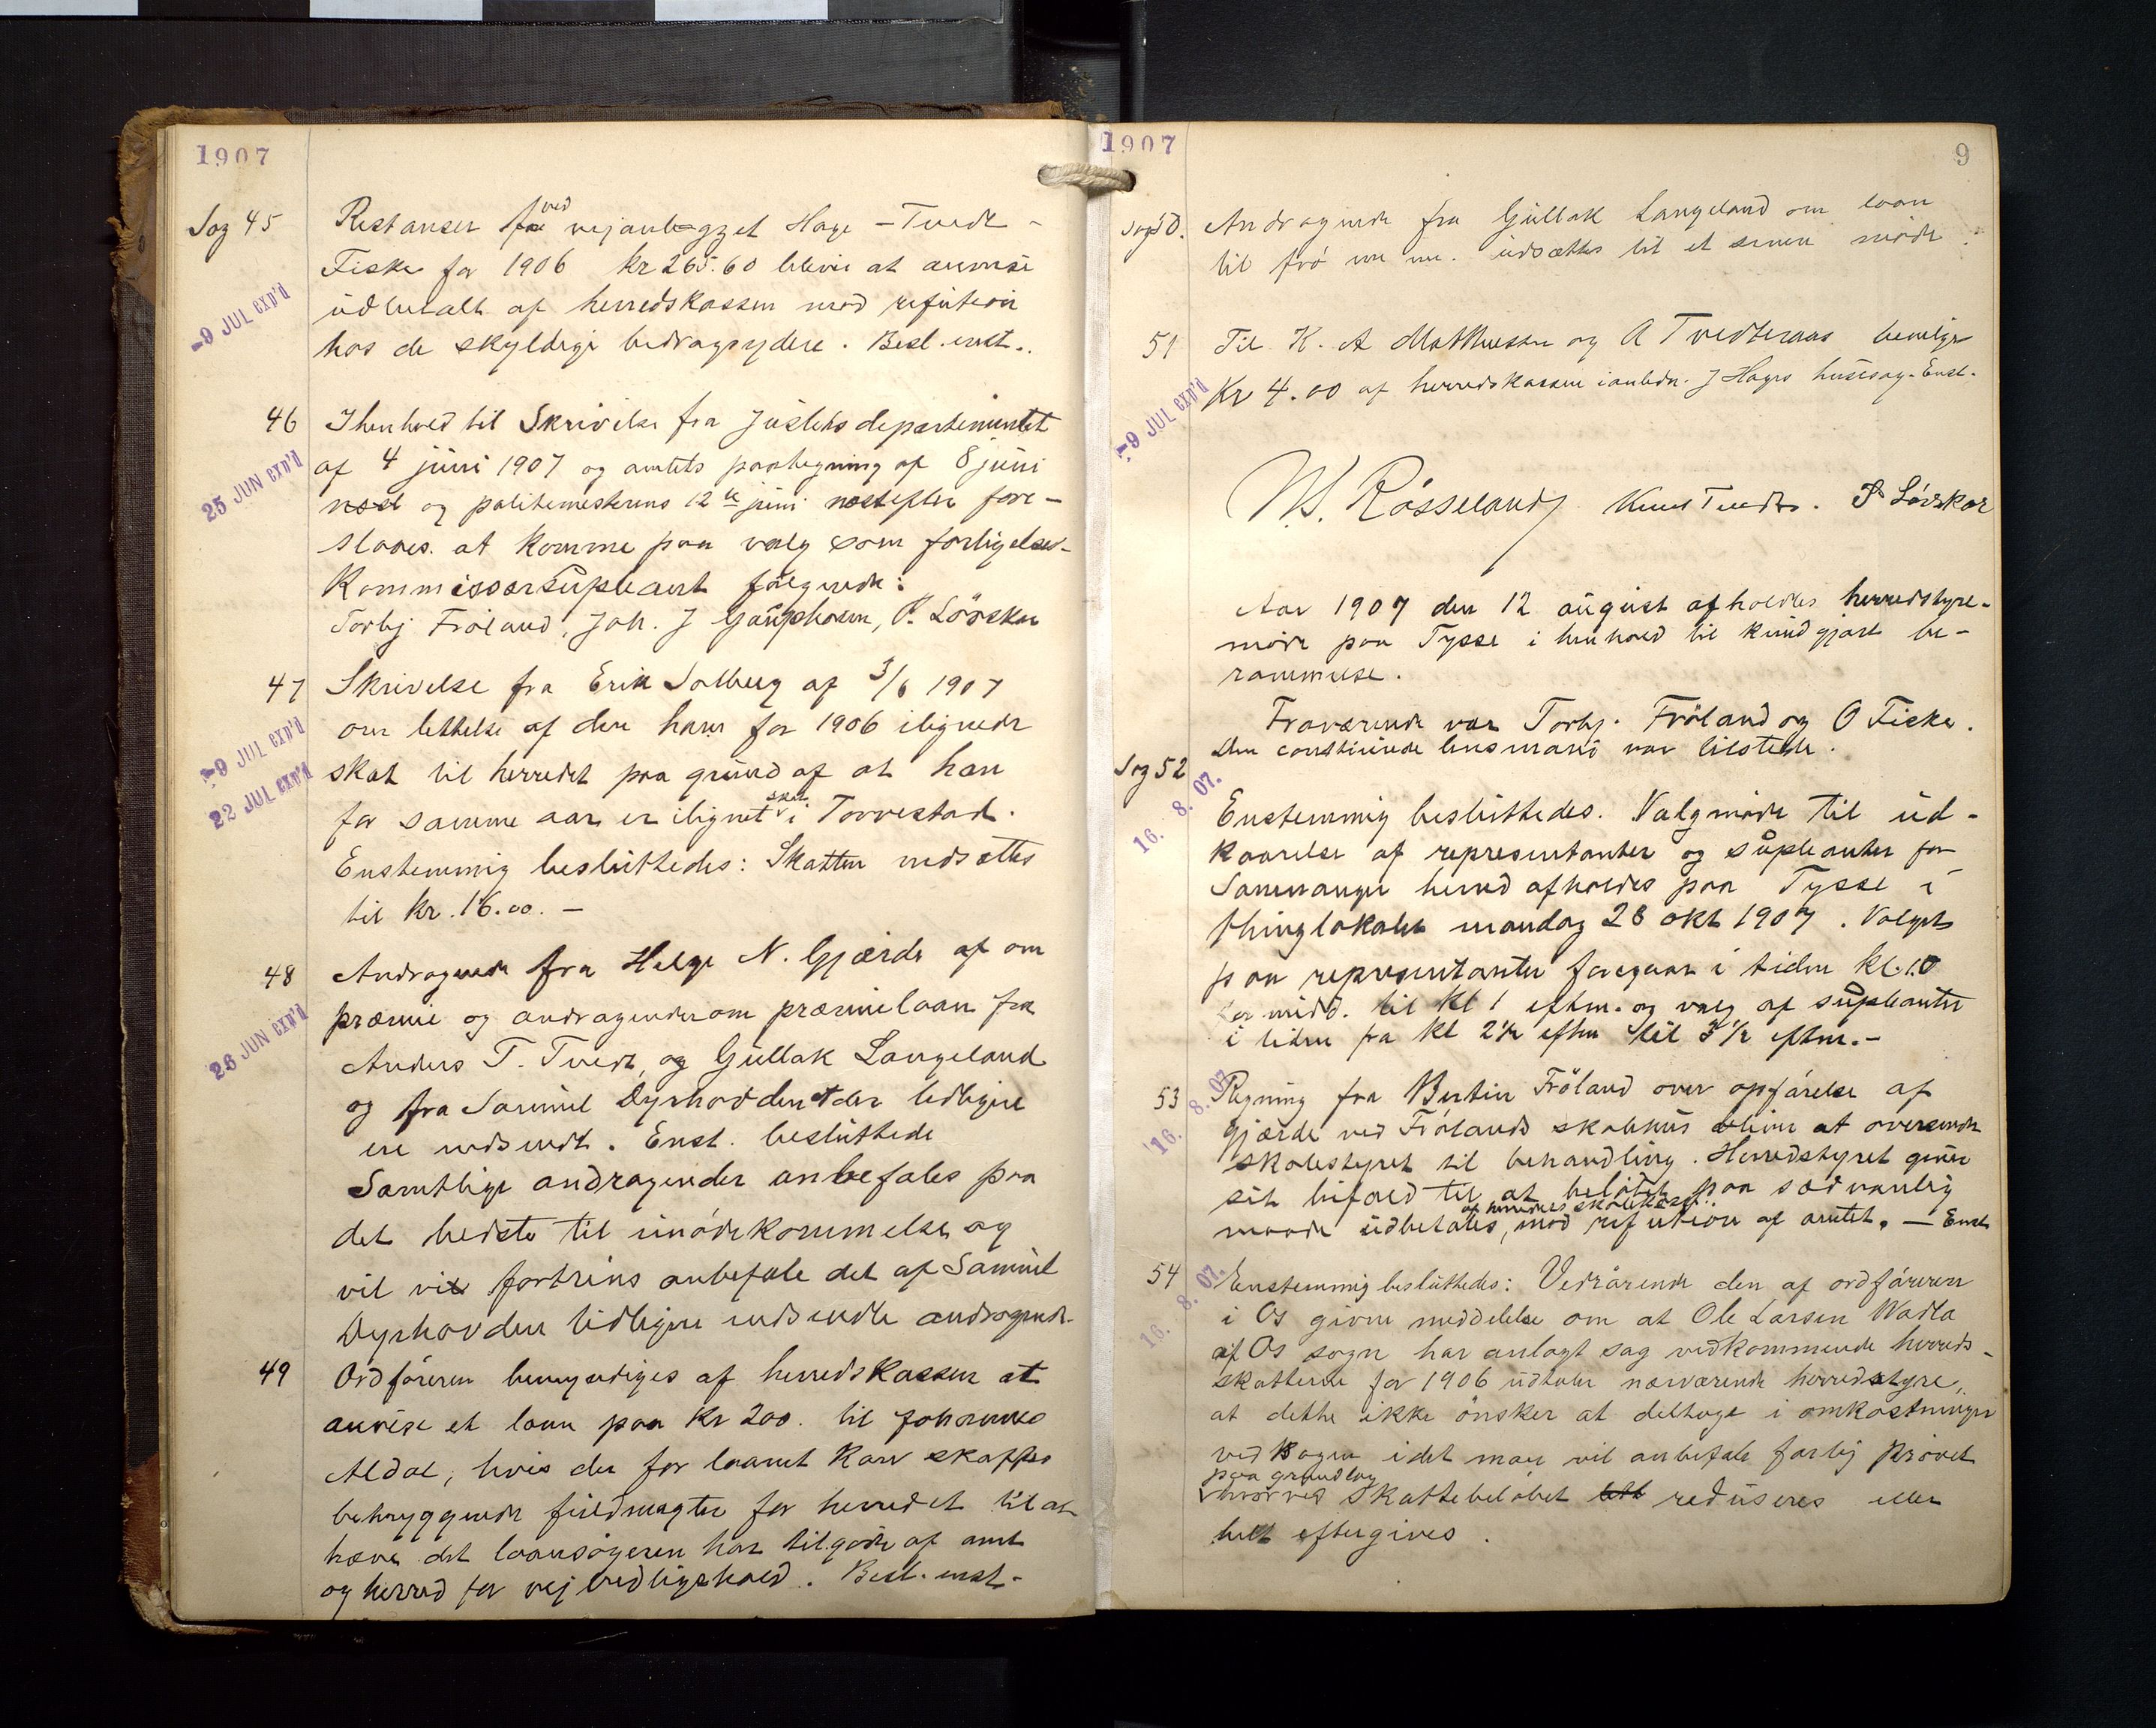 1907
Sag 45 Restanser for ved vejanlægget Hage - Tvedt -
Fiske for 1906 kr 265.60 blev at anvise
udbetalt af herredskassen mod refution
hos de skyldige bidragsydere. Besl. enst.
-9 JUL exp'd
46 I henhold til Skrivelse fra Justitsdepartementet
af 4 juni 1907 og amtets paategning af 8 juni
næst og politimesterens 12te juni næstefter fore-
slaaes at komme paa valg som forligelses-
Kommissærsupleant følgende:
Torbj Frøland, Joh. J Gaupholm, P. Løvskar
25 JUN exp'd
47 Skrivelse fra Erik Solberg af 3/6 1907
om lettelse af den ham for 1906 ilignede
skat til herredet paa grund af at han
for samme aar er ilignet skat i Torvestad.
Enstemmig besluttedes: Skatten nedsættes
til kr. 16.00. -
-9 JUL exp'd
22 JUL exp'd
48 Andragende fra Helge N. Gjærde af om
præmie og andragender om præmielaan fra
Anders T. Tvedt, og Gullak Langeland
og fra Samuel Dyrhovden der tidligere
ere indsendt. Enst. besluttede
Samtlige andragender anbefales paa
det bedste til imødekommelse og
vil vi fortrins anbefale det af Samuel
Dyrhovden tidligere indsendte andragende.
26 JUN exp'd
49 Ordføreren bemyndiges af herredskassen at
anvise et laan paa Kr 200. til Johannes
Aldal, hvis der for laanet kan skaffes
betryggende fuldmagter for herredet til at
hæve det laansøgeren har tilgode af amt
og herred for vejvedligehold. Besl. enst.
1907
9
Sag 50. Andragende fra Gullak Langeland om laan
til frø udsættes til et senere møde.
51 Til K. A Mathiesen og A Tvedteraas bevilges
Kr 4.00 af herredskassen i anledn. J Hages husesag. Enst.
-9 JUL exp'd
M. Røsseland Knut Tvedt. P Løvskar
Aar 1907 den 12 august afholdtes herredstyre-
møde paa Tysse i henhold til kundgjort be-
rammelse.
Fraværende var Torbj. Frøland og O Fiske.
Den constituerede lensmand var tilstede.
Sag 52
16. 8. 07.
Enstemmig besluttedes. Valgmøde til ud-
kaarelse af representanter og supleanter for
Samnanger herred afholdes paa Tysse i
thinglokalet mandag 28 okt 1907. Valget
paa representanter foregaar i tiden kl. 10
formidd. til kl 1 eftm. og valg af supleanter
i tiden fra kl 2½ eftm til 3½ eftm.-
53 Regning fra Bertin Frøland over opførelse af
gjærde ved Frølands skolehus bliver at oversende
skolestyret til behandling. Herredstyret giver
sit bifald til at beløbet paa sædvanlig
maade udbetales, af herredets skolekasse mod refution af amtet. - Enst
16. 8. 07
54 Enstemmig besluttedes: Vedrørende den af ordføreren
i Os givne meddelelse om at Ole Larsen Wadla
af Os sogn har anlagt sag vedkommende herreds-
skatterne for 1906 udtaler nærværende herredstyre,
at dette ikke ønsker at deltage i omkostninger
ved sagen idet man vil anbefale forlig prøvet
paa grundlag
hvorved skattebeløbet redüseres eller
helt eftergives.
16. 8. 07.